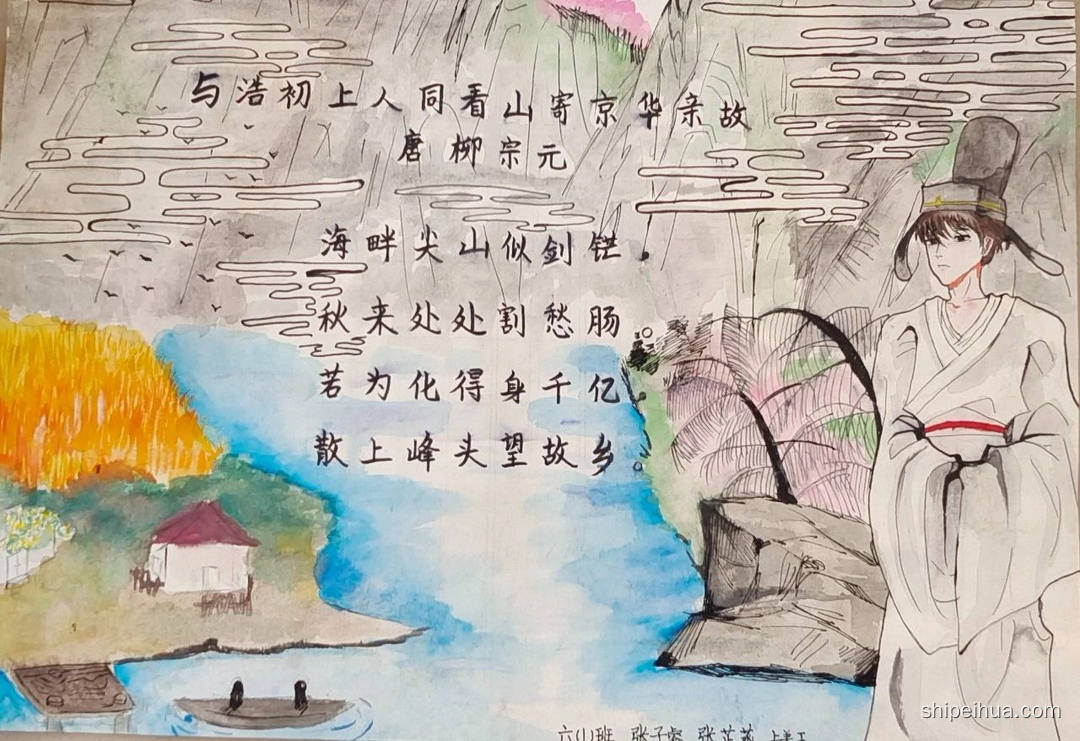 与浩初上人同看山寄京华亲故
唐 柳宗元
海畔尖山似剑铓。
秋来处处割愁肠。
若为化得身千亿。
散上峰头望故乡。
六(1)班 张子 张芷
shipeihua.com